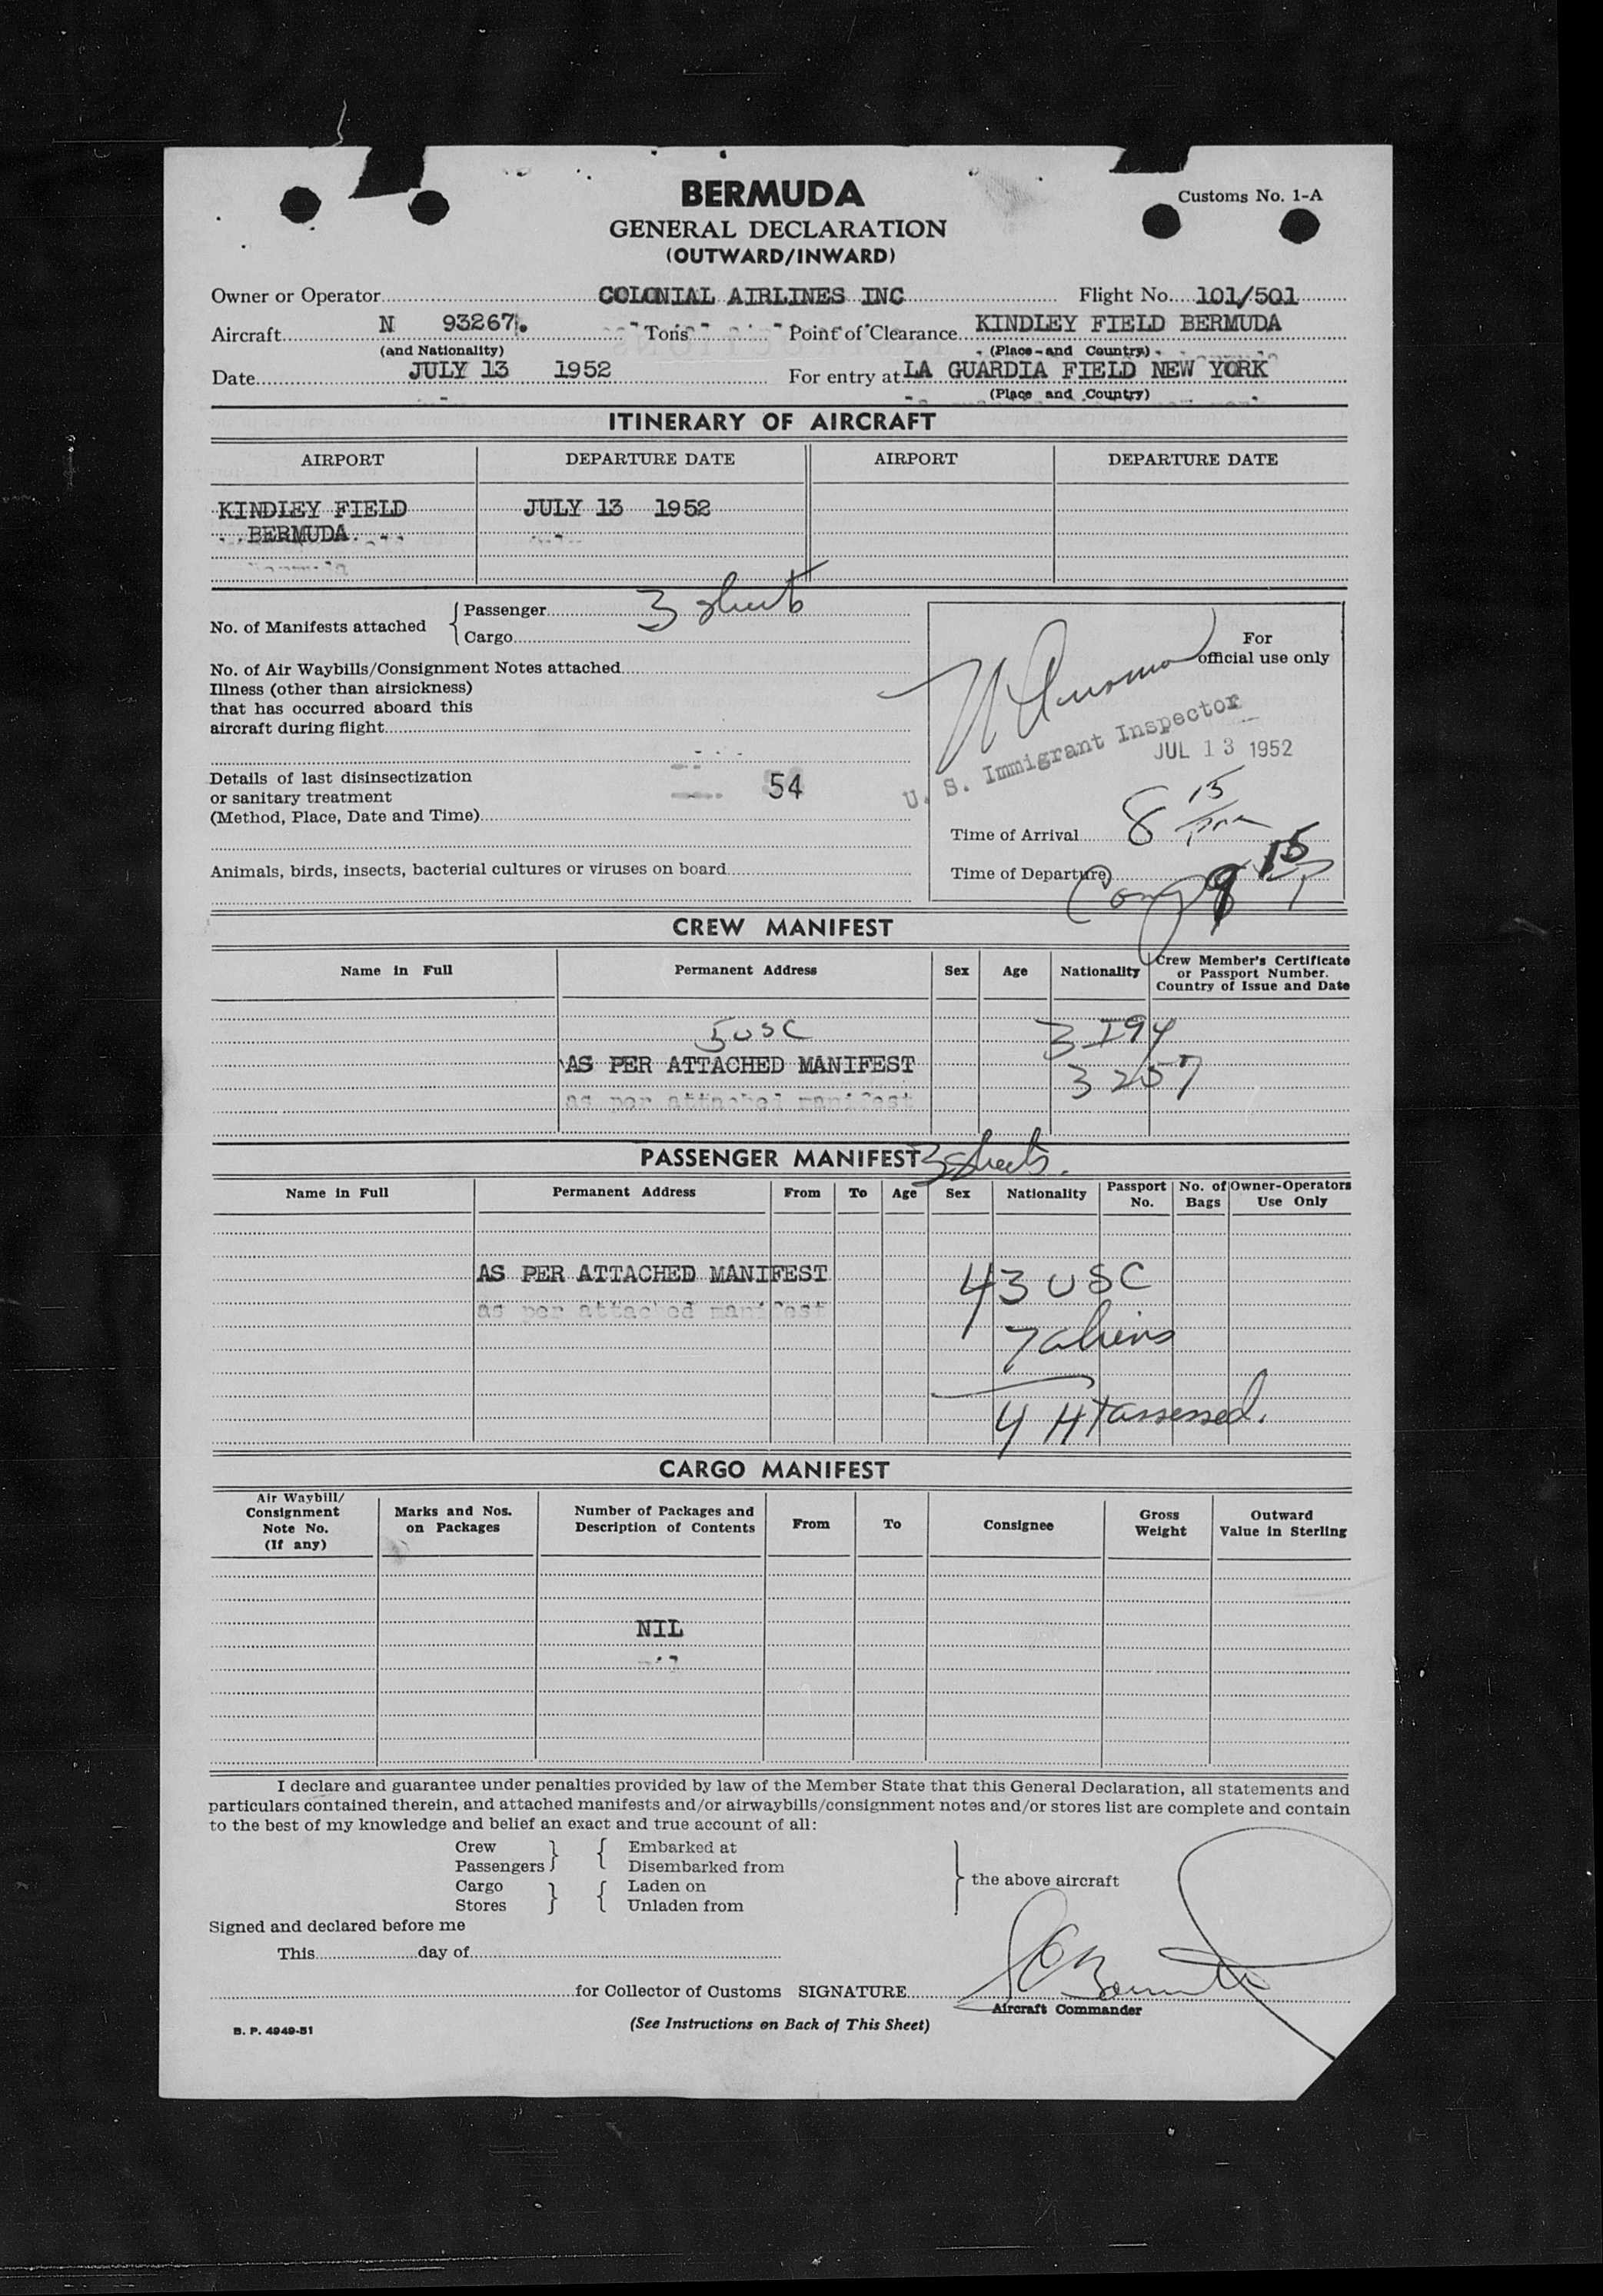 BERMUDA
Customs No. 1-A
GENERAL DECLARATION
(OUTWARD/INWARD)
Owner or Operator COLONIAL AIRLINES INC Flight No. 101/501
Aircraft N 93267. Tons Point of Clearance KINDLEY FIELD BERMUDA
(and Nationality) (Place and Country)
Date JULY 13 1952 For entry at LA GUARDIA FIELD NEW YORK
(Place and Country)
ITINERARY OF AIRCRAFT
AIRPORT DEPARTURE DATE AIRPORT DEPARTURE DATE
KINDLEY FIELD JULY 13 1952
BERMUDA
No. of Manifests attached { Passenger 3 sheets
Cargo
For
official use only
No. of Air Waybills/Consignment Notes attached
Illness (other than airsickness)
that has occurred aboard this
aircraft during flight
U. S. Immigrant Inspector
JUL 13 1952
Details of last disinsectization
or sanitary treatment 54
(Method, Place, Date and Time)
Time of Arrival 8 15 pm
Animals, birds, insects, bacterial cultures or viruses on board
Time of Departure 9 15 P
CREW MANIFEST
Name in Full Permanent Address Sex Age Nationality Crew Member's Certificate
or Passport Number.
Country of Issue and Date
5 USC 3 I94
AS PER ATTACHED MANIFEST 3 257
as per attached manifest
PASSENGER MANIFEST 3 sheets.
Name in Full Permanent Address From To Age Sex Nationality Passport No. No. of Bags Owner-Operators Use Only
AS PER ATTACHED MANIFEST 43 USC
as per attached manifest
7 aliens
4 HT assessed.
CARGO MANIFEST
Air Waybill/
Consignment
Note No.
(If any)
Marks and Nos.
on Packages
Number of Packages and
Description of Contents
From To Consignee
Gross
Weight
Outward
Value in Sterling
NIL
nil
I declare and guarantee under penalties provided by law of the Member State that this General Declaration, all statements and
particulars contained therein, and attached manifests and/or airwaybills/consignment notes and/or stores list are complete and contain
to the best of my knowledge and belief an exact and true account of all:
Crew } { Embarked at
Passengers Disembarked from
Cargo } { Laden on } the above aircraft
Stores Unladen from
Signed and declared before me
This day of
for Collector of Customs SIGNATURE
Aircraft Commander
B. P. 4949-51
(See Instructions on Back of This Sheet)